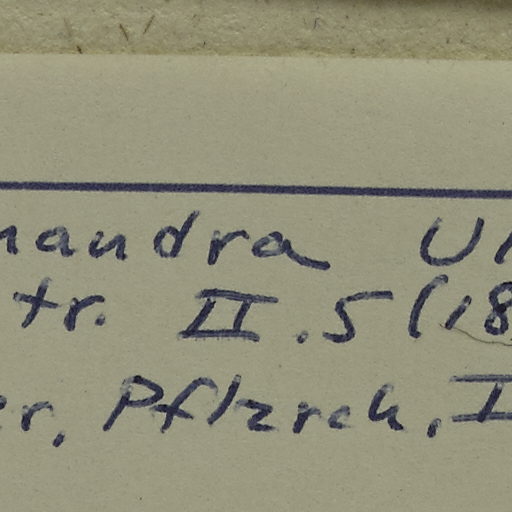 nandra Ul
tr. II. 5 (18
er, Pflzrch, I